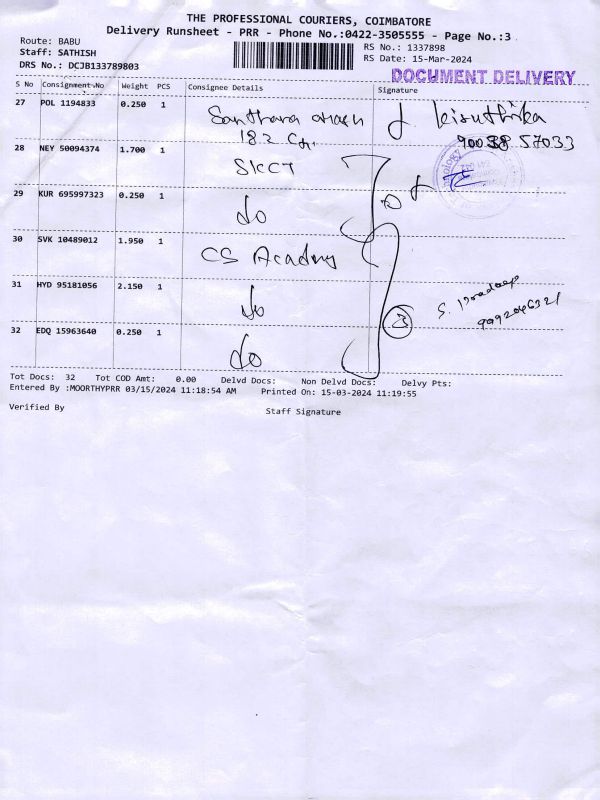 THE PROFESSIONAL COURIERS, COIMBATORE
Delivery Runsheet - PRR - Phone No.:0422-3505555 - Page No.:3
Route: BABU
Staff: SATHISH
DRS No.: DCJB133789803
RS No.: 1337898
RS Date: 15-Mar-2024
DOCUMENT DELIVERY
S No Consignment No Weight PCS Consignee Details Signature
27 POL 1194833 0.250 1
90038 57033
28 NEY 50094374 1.700 1 SKCT
29 KUR 695997323 0.250 1 do
30 SVK 10489012 1.950 1 CS Academy
31 HYD 95181056 2.150 1 do
3
32 EDQ 15963640 0.250 1 do
Tot Docs: 32 Tot COD Amt: 0.00 Delvd Docs: Non Delvd Docs: Delvy Pts:
Entered By :MOORTHYPRR 03/15/2024 11:18:54 AM Printed On: 15-03-2024 11:19:55
Verified By
Staff Signature